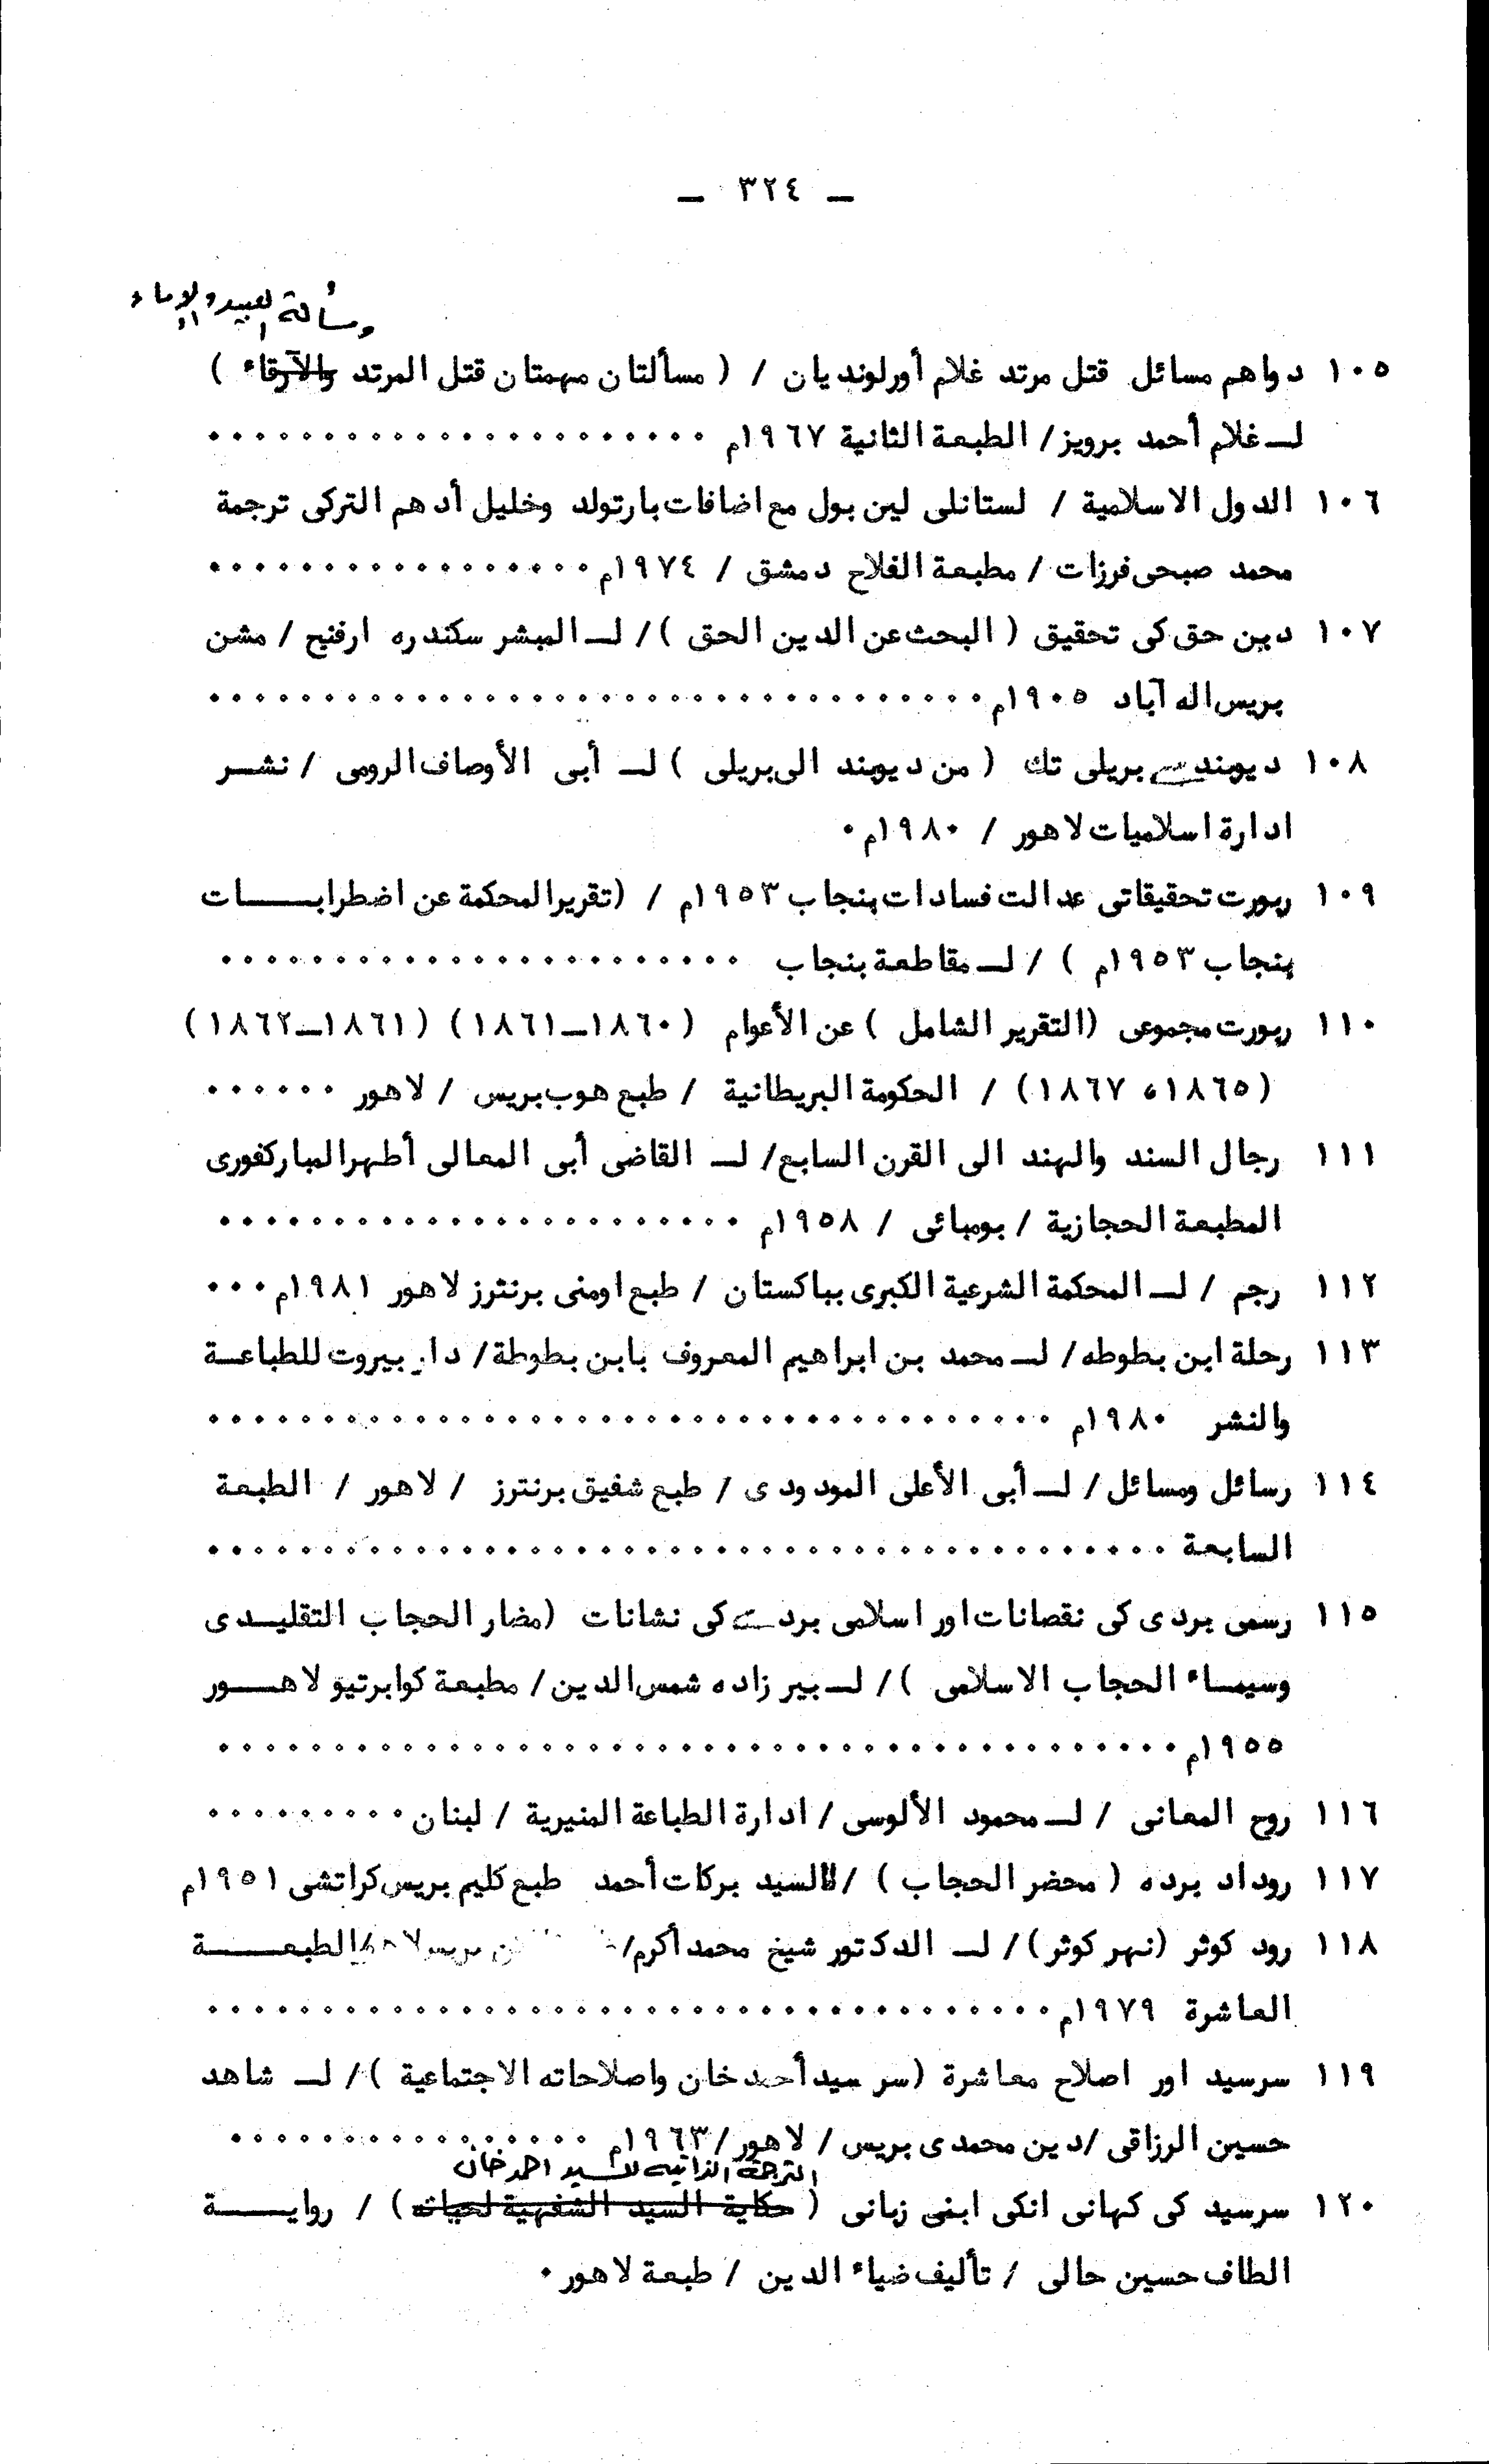 ـ ٣٢٤ ـ
ومسألة العبيد والإماء
١٠٥ دواهم مسائل قتل مرتد غلام أورلونديان / ( مسألتان مهمتان قتل المرتد والآرقاء )
لـ غلام أحمد برويز/ الطبعة الثانية ١٩٦٧م ......................
١٠٦ الدول الاسلامية / لستانلى لين بول مع اضافات بارتولد وخليل أدهم التركى ترجمة
محمد صبحى فرزات / مطبعة الفلاح دمشق / ١٩٧٤م .................
١٠٧ دين حق كى تحقيق ( البحث عن الدين الحق )/ لـ المبشر سكندره ارفنيج / مشن
بريس اله آباد ١٩٠٥م ..................................
١٠٨ ديوبند سے بريلى تك ( من ديوبند الى بريلى ) لـ أبى الأوصاف الرومى / نشـر
ادارة اسلاميات لاهور / ١٩٨٠م .
١٠٩ رپورت تحقيقاتى عدالت فسادات پنجاب ١٩٥٣م / (تقرير المحكمة عن اضطرابـــات
پنجاب ١٩٥٣م ) / لـ مقاطعة بنجاب .......................
١١٠ رپورت مجموعى (التقرير الشامل ) عن الأعوام (١٨٦٠ـ١٨٦١) (١٨٦١ـ١٨٦٢)
(١٨٦٥، ١٨٦٧) / الحكومة البريطانية / طبع هوب بريس / لاهور ......
١١١ رجال السند والهند الى القرن السابع/ لـ القاضى أبى المعالى أطهر المباركفورى
المطبعة الحجازية / بومبائى / ١٩٥٨م .......................
١١٢ رجم / لـ المحكمة الشرعية الكبرى بباكستان / طبع اومنى برنثرز لاهور ١٩٨١م ...
١١٣ رحلة ابن بطوطه/ لـ محمد بن ابراهيم المعروف بابن بطوطة/ دار بيروت للطباعـة
والنشر ١٩٨٠م .....................................
١١٤ رسائل ومسائل/ لـ أبى الأعلى المودودى / طبع شفيق برنترز / لاهور / الطبعة
السابعة ..........................................
١١٥ رسمى بردى كى نقصانات اور اسلامى بردے كى نشانات (مضار الحجاب التقليـدى
وسيمـاء الحجاب الاسلامى )/ لـ بير زاده شمس الدين/ مطبعة كوابرتيو لاهـــور
١٩٥٥م ..........................................
١١٦ روح المعانى / لـ محمود الألوسى / ادارة الطباعة المنيرية / لبنان .........
١١٧ روداد برده ( محضر الحجاب ) / للسيد بركات أحمد طبع كليم بريس كراتشى ١٩٥١م
١١٨ رود كوثر (نهر كوثر)/ لـ الدكتور شيخ محمد أكرم/ بريس لاهور/ الطبعــــة
العاشرة ١٩٧٩م .....................................
١١٩ سرسيد اور اصلاح معاشرة (سر سيد أحمد خان واصلاحاته الاجتماعية )/ لـ شاهد
حسين الرزاقى /دين محمدى بريس / لاهور/ ١٩٦٣م ................
الترجمة الذاتية للسيد احمد خان
١٢٠ سرسيد كى كهانى انكى ابنى زبانى ( حكاية السيد الشفهية لحياته ) / روايـــة
الطاف حسين حالى / تأليف ضياء الدين / طبعة لاهور .